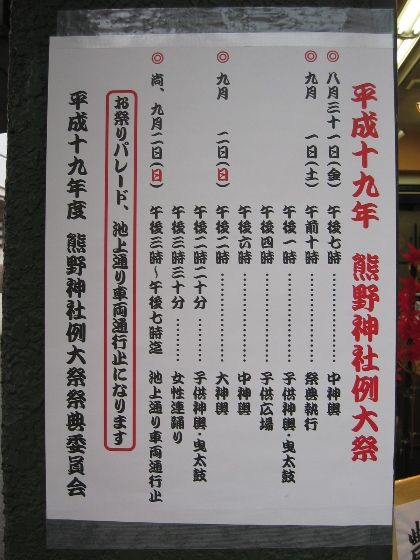 平成十九年 熊野神社例大祭
◎八月三十一日(金) 午後七時…………中神輿
◎九月 一日(土) 午前十時…………祭典執行
午後一時…………子供神輿・曳太鼓
午後四時…………子供広場
午後六時…………中神輿
◎九月 二日(日) 午後二時…………大神輿
午後二時二十分……子供神輿・曳太鼓
午後三時三十分……女性連踊り
◎尚、九月二日(日) 午後三時〜午後七時迄 池上通り車両通行止
お祭りパレード、池上通り車両通行止になります
平成十九年度 熊野神社例大祭祭典委員会